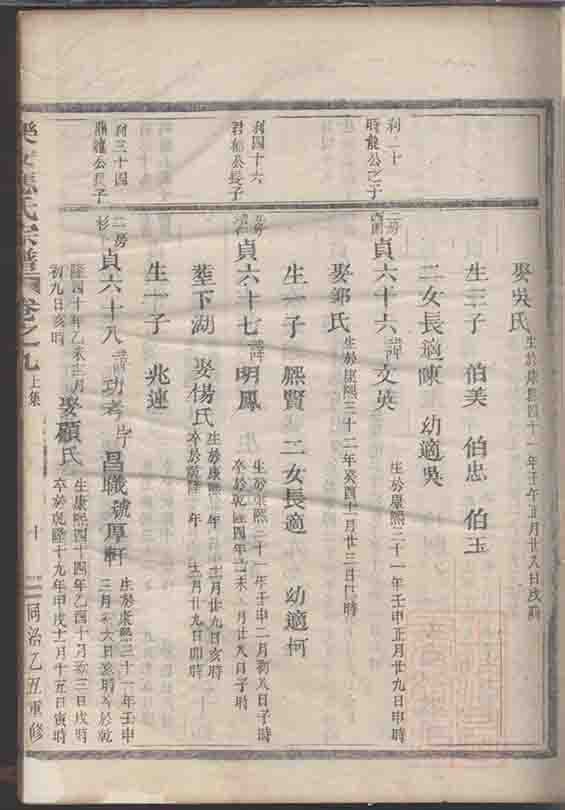 利二十
時龍公之子
利四十六
君郁公長子
利三十四
鼎禮公長子
娶吳氏
生於康熙四十一年壬午正月廿八日戌時
生三子 伯美 伯忠 伯玉
二女長適陳 幼適吳
二房
貞六十六 諱文英
生於康熙三十一年壬申正月廿九日申時
娶鄭氏
生於康熙三十二年癸酉十月廿三日 時
生一子 熙賢 二女長適 幼適柯
房
貞六十七 諱明鳳
生於康熙三十一年壬申二月初八日子時
卒於乾隆四年己未 月廿八日子時
塟下湖 娶楊氏
生於康熙 年 月廿九日亥時
卒於乾隆 年 十二月廿九日卯時
生一子 兆連
二房
杉
貞六十八 諱功考 字昌職 號厚軒
生於康熙三十一年壬申
三月 六日 時卒於乾
隆四十年乙未 月
初九日亥時
娶顧氏
生康熙四十四年乙酉十月初三日戌時
卒於乾隆十九年甲戌十一月十五日寅時
氏宗譜 卷之九 上集
十
同治乙丑重修